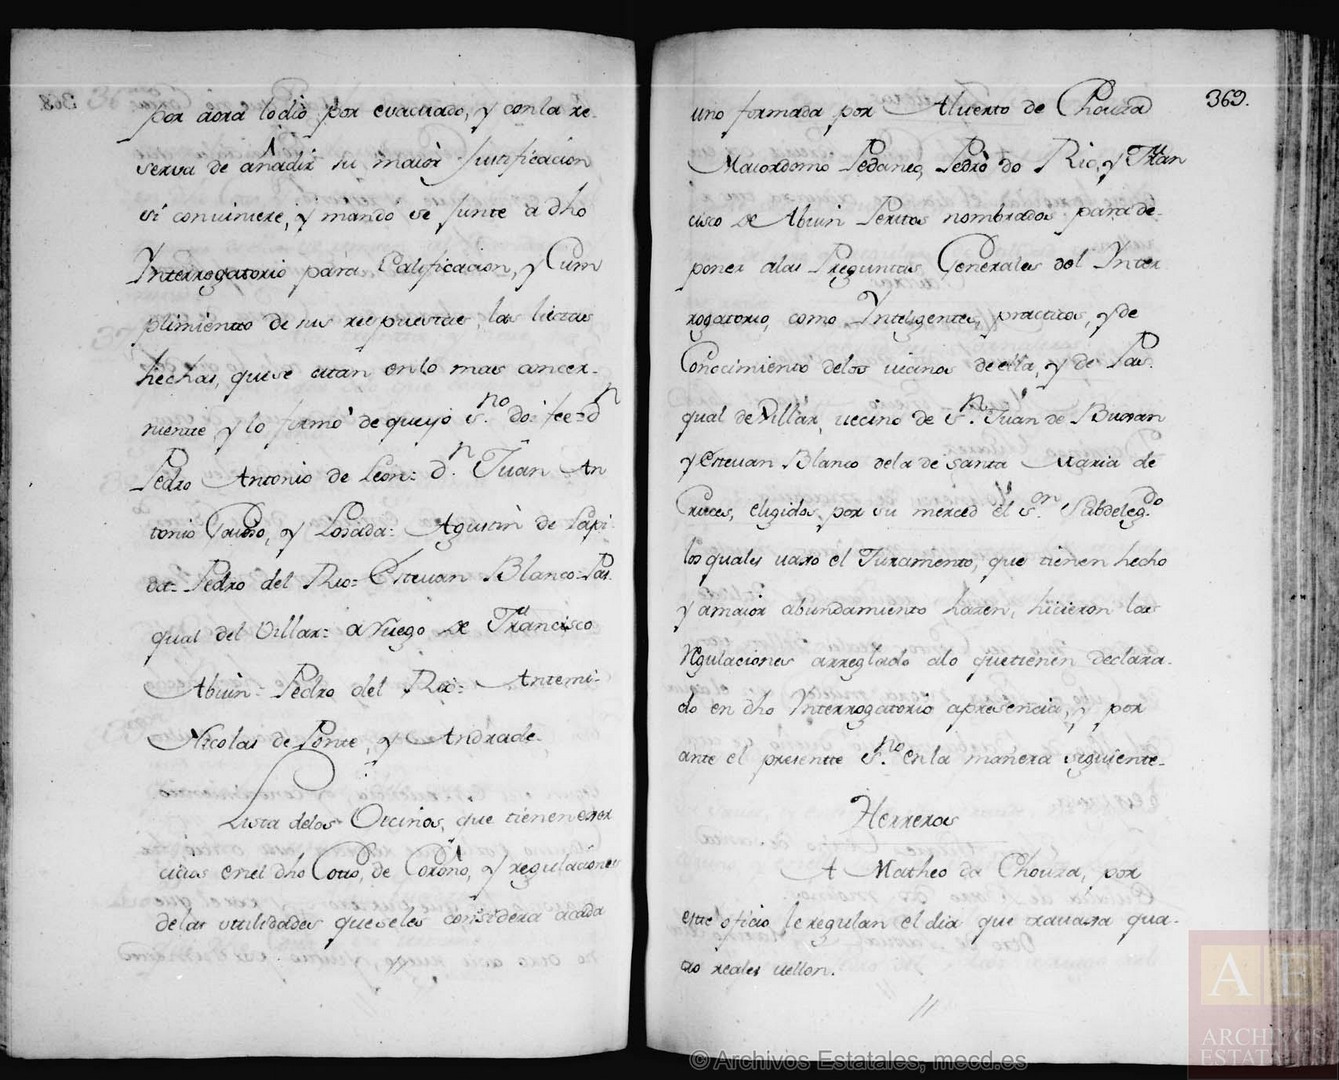 por aora lo dio por evacuado, y con la re-
serva de añadir su maior Justificacion
si conviniere, y mando se junte a dho
Ynterrogatorio para Calificacion, y Cum
plimientto de sus respuestas, las listtas
hechas, que se citan en lo mas ancer-
niente y lo firmò de que yo s.no doi fee= dn
Pedro Antonio de Leon= d.n Juan An
tonio Pariño, y Losada= Agustin de Papi-
Pedro del Rio= Estevan Blanco= Pas
qual del Villar= a ruego de Francisco
Abuin= Pedro del Rio= Antemi-
Nicolas de Ponte, y Andrade.
Lista delos Oficios, que tienen exer
cicios en el dho Cotto, de Coroño, y regulaciones
delas utilidades que seles considera acada
369.
uno formada por Alverto de Chouza
Maiordomo Pedaneo, Pedro do Rio, y Fran
cisco de Abuin Peritos nombrados para de-
poner alas Preguntas Generales del Ynter
rogatorio, como Ynteligentes, practicos, y de
Conocimiento delos vecinos de ella, y de Pas-
qual de Villar, vecino de S.n Juan de Buxan
y Estevan Blanco dela de Santa Maria de
Cruces, eligidos por su merced el S.or Subdeleg.do
los quales vaxo el Juramento, que tienen hecho
y amaior abundamiento hazen, hicieron las
regulaciones arreglado alo que tienen declara-
do en dho Ynterrogatorio apresencia, y por
ante el presentte S.no en la manera siguiente-
Herreros
A Matheo da Chouza, por
este oficio le regulan el dia que travaxa qua-
tro reales vellon.
© Archivos Estatales, mecd.es
AE
ARCHIVOS
ESTATALES